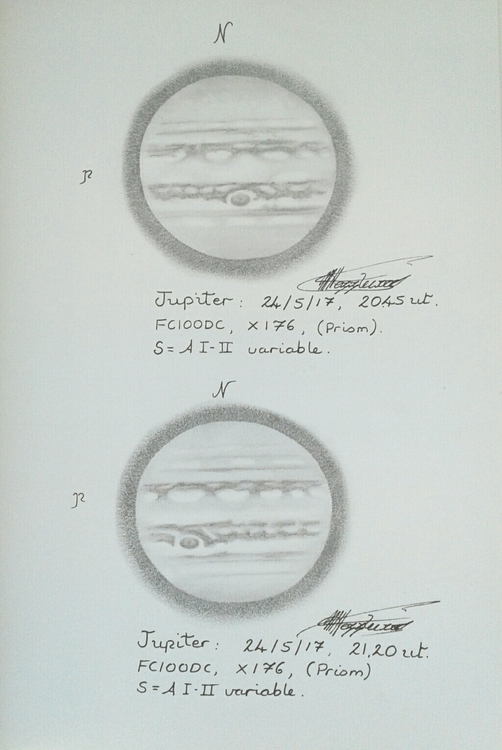 N
P
Jupiter: 24/5/17, 2045 ut.
FC100DC, x176, (Prism).
S= A I-II variable.
N
P
Jupiter: 24/5/17, 21,20 ut.
FC100DC, x176, (Prism)
S= A I-II variable.